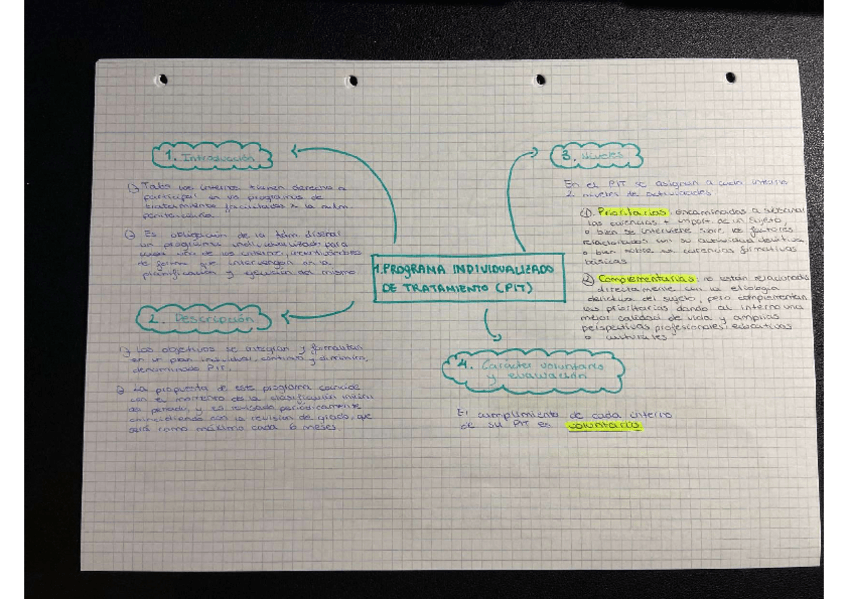 1. Introducción
1) Todos los internos tienen derecho a
participar en los programas de
tratamiento facilitados x la adm.
penitenciaria.
2) Es obligación de la Adm diseñar
un programa individualizado para
cada uno de los internos, incentivándoles
de forma que intervengan en la
planificación y ejecución del mismo
2. Descripción
1) Los objetivos se integran y formulan
en un plan individual, continuo y dinámico,
denominado PIT.
2) La propuesta de este programa coincide
con el momento de la clasificación inicial
del penado, y es revisado periódicamente
coincidiendo con la revisión de grado, que
será como máximo cada 6 meses
1. PROGRAMA INDIVIDUALIZADO
DE TRATAMIENTO (PIT)
3. Niveles
En el PIT se asignan a cada interno
2 niveles de actividades
1) Prioritarias: encaminadas a subsanar
las carencias + import. de un sujeto,
o bien se interviene sobre los factores
relacionados con su actividad delictiva
o bien sobre sus carencias formativas
básicas
2) Complementarias: no están relacionadas
directamente con la etiología
delictiva del sujeto, pero complementan
las prioritarias dando al interno una
mejor calidad de vida y amplias
perspectivas profesionales, educativas
o culturales.
4. Carácter voluntario
y evaluación
El cumplimiento de cada interno
de su PIT es voluntario